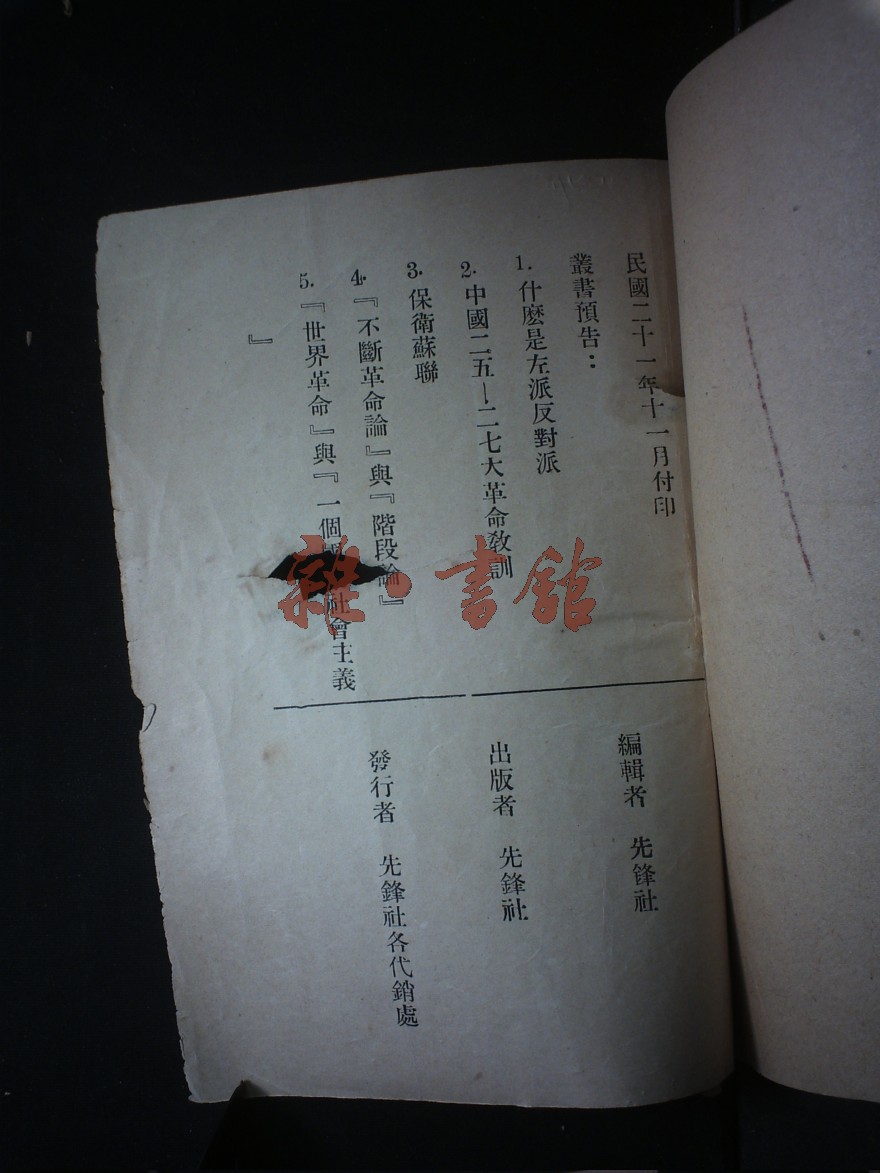 民國二十一年十一月付印
叢書預告：
1. 什麽是左派反對派
2. 中國二五—二七大革命教訓
3. 保衛蘇聯
4. 『不斷革命論』與『階段論』
5. 『世界革命』與『一個 社會主義
』
編輯者 先鋒社
出版者 先鋒社
發行者 先鋒社各代銷處
雜·書舘